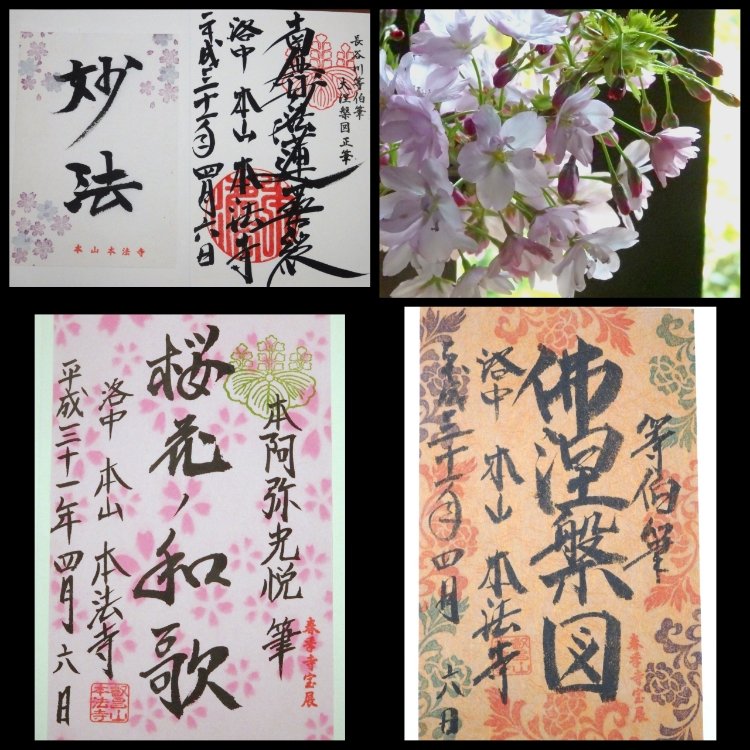 妙法
本山本法寺
長谷川等伯筆
大涅槃図正筆
南無妙法蓮華経
洛中 本山 本法寺
平成三十一年四月六日
本阿弥光悦 筆
春季寺宝展
桜花ノ和歌
洛中 本山 本法寺
叡昌山
本法寺
平成三十一年四月六日
等伯筆
春季寺宝展
佛涅槃図
洛中 本山 本法寺
平成三十一年四月六日